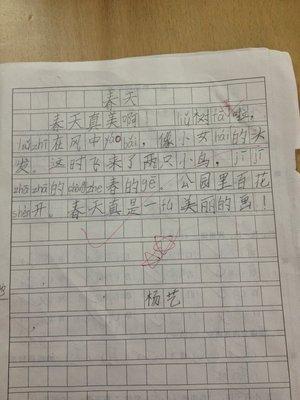 春天
春天真美啊！liǔ树fā啦，
liǔ zhī在风中yáo bǎi，像小女hái的头
发。这时飞来了两只小鸟，jī jī
zhā zhā的chàng zhe春的gē。公园里百花
shèng开。春天真是一fú美丽的画！
杨艺